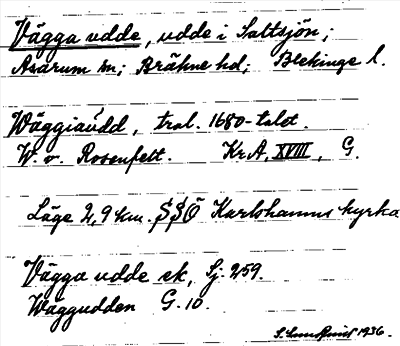 Vägga udde, udde i Saltsjön;
Asarum sn; Bräkne hd; Blekinge l.
Wäggiaudd, trol. 1680-talet.
W. v. Rosenfelt. Kr.A, XVIII, G.
Läge 2,9 km. SSÖ Karlshamns kyrka
Vägga udde ek, Sj. 259.
Wäggudden G. 10.
S. Lundquist 1936.